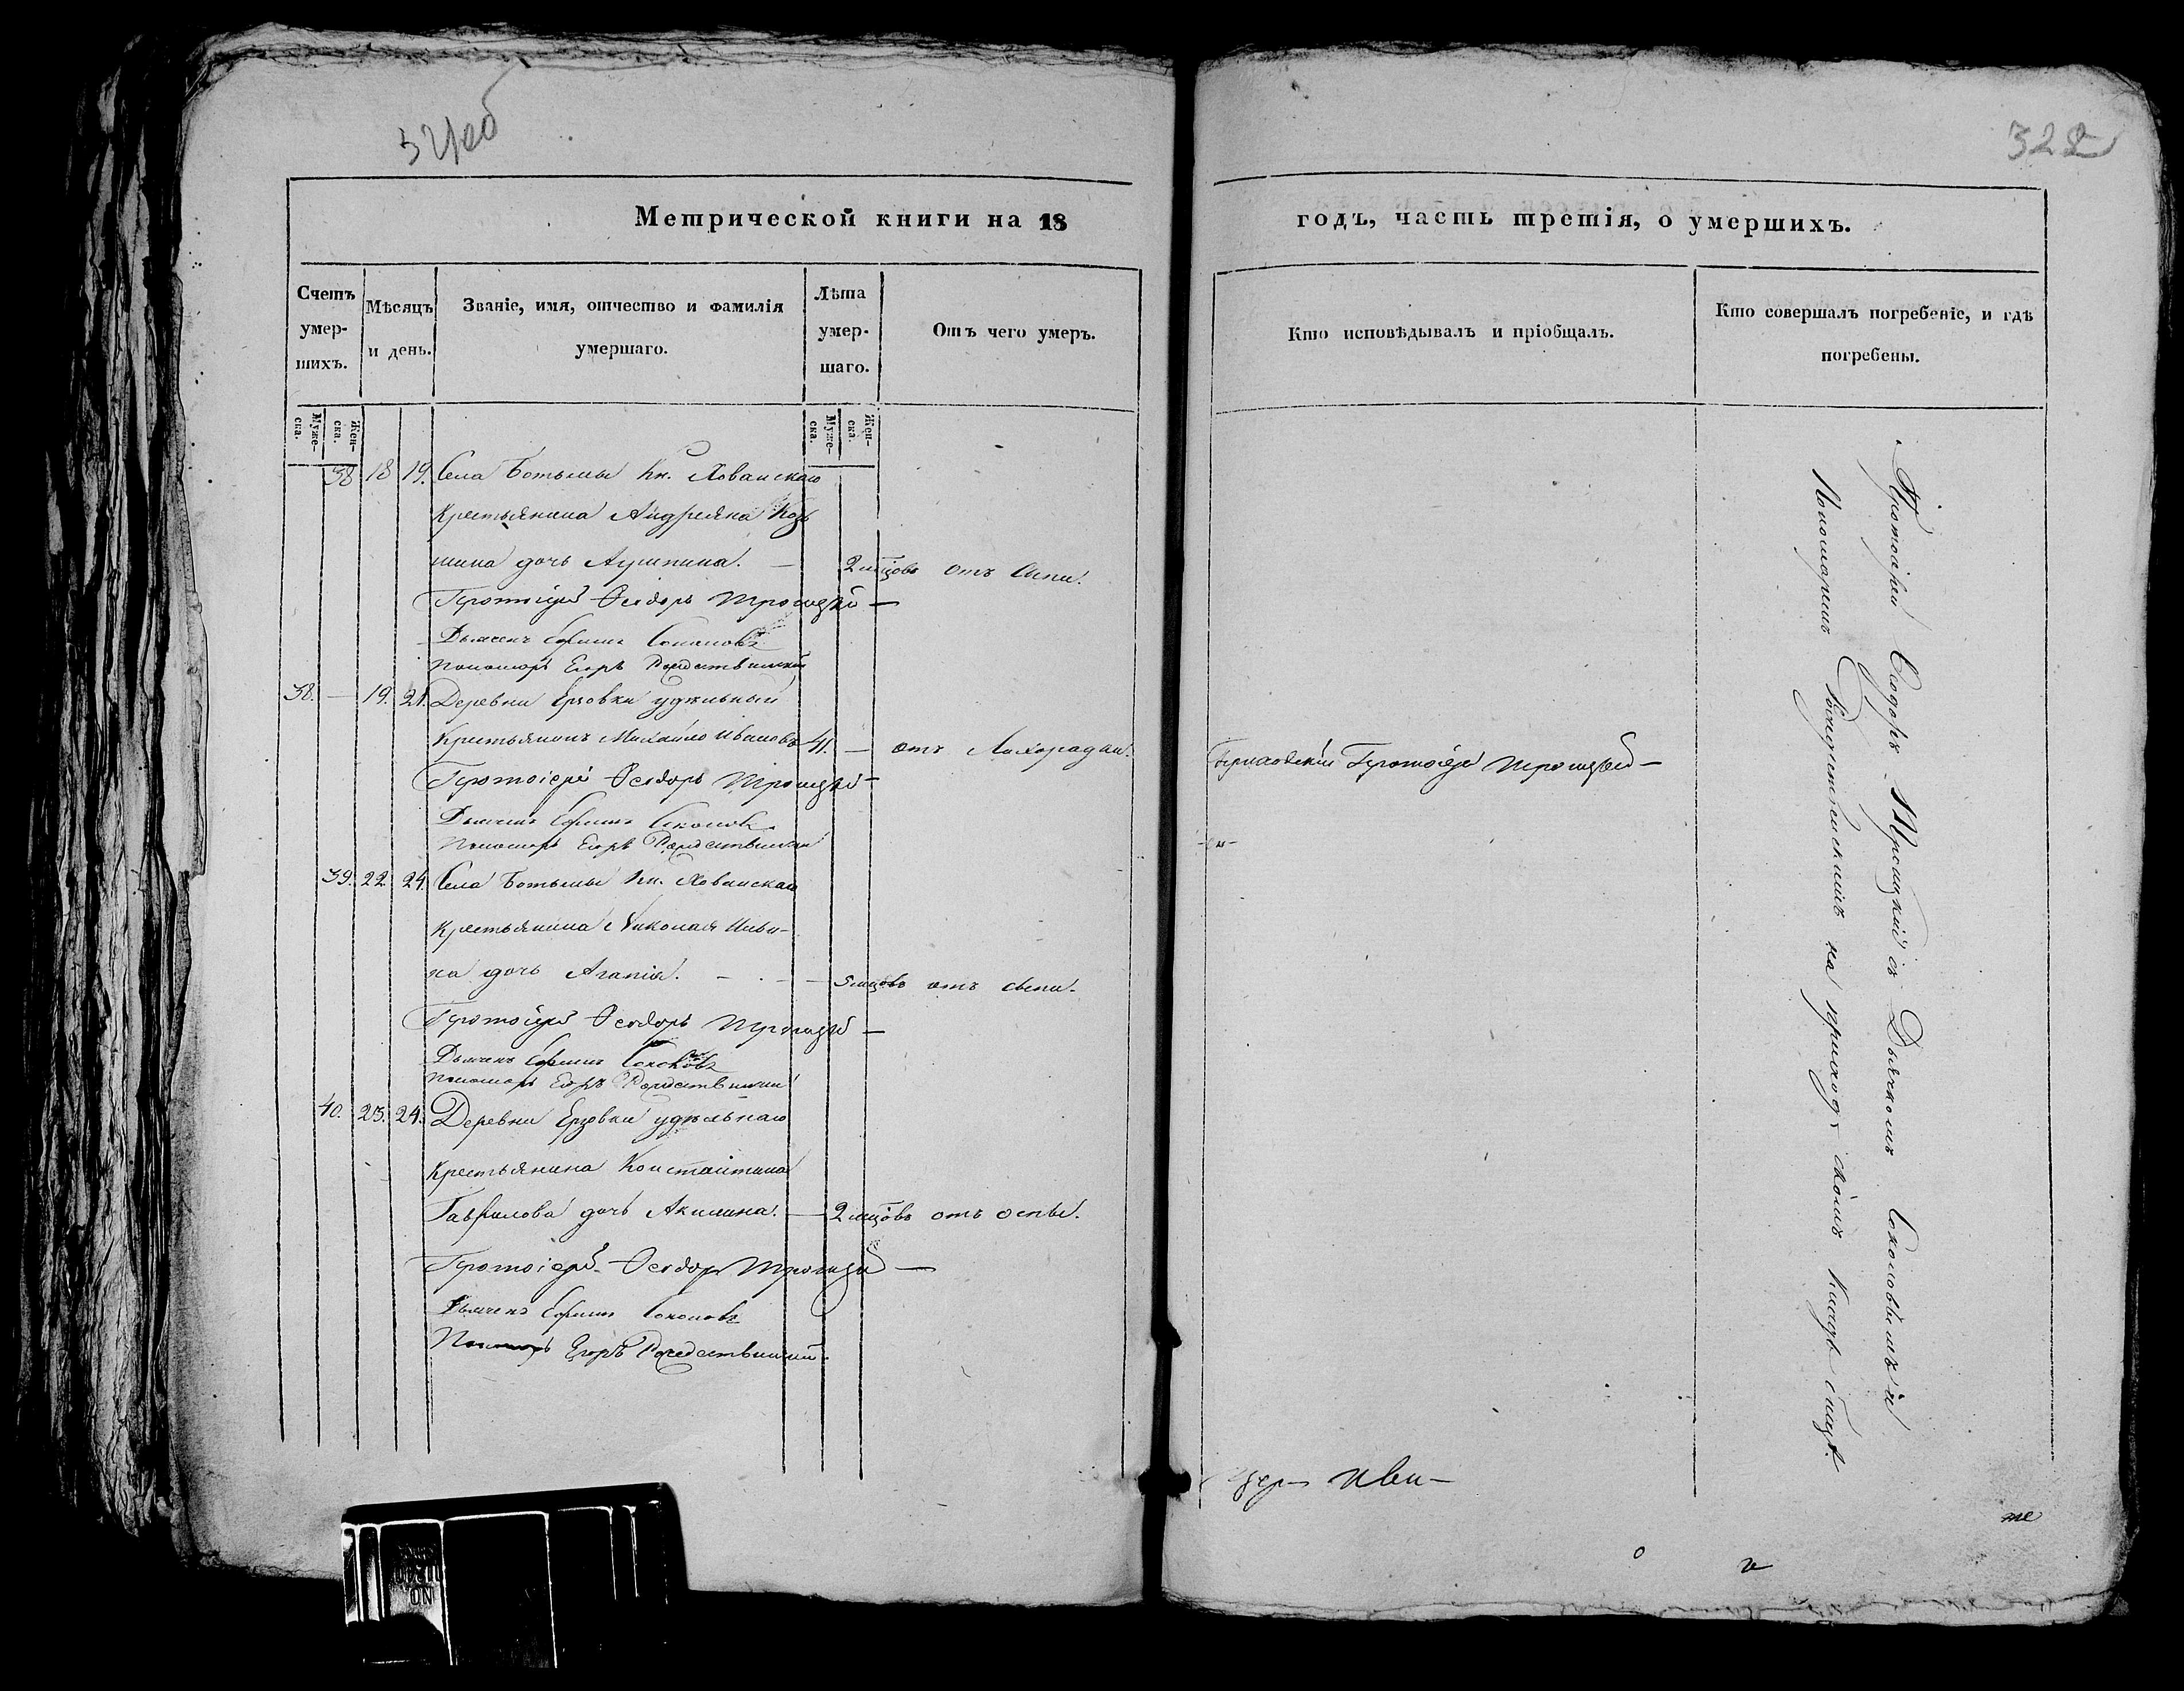 321об
322
Метрической книги на 18
годъ, часть третія, о умершихъ.
Счетъ умер- шихъ.
Мѣсяцъ и день.
Званіе, имя, отчество и фамилія умершаго.
Лѣта умер- шаго.
Отъ чего умеръ.
Кто исповѣдывалъ и пріобщалъ.
Кто совершалъ погребеніе, и гдѣ погребены.
Муже- ска.
Жен- ска.
Муже- ска.
Жен- ска.
38 18 19. Села Ботьмы Кн. Хованскаго
Крестьянина Андреяна Козь
мина дочь 2 мцовъ отъ оспи.
Протоіерей Ѳеодоръ Троицкій
Дьячекъ Ефимъ Соколовъ
Пономарь Егоръ Рождественскій
38. — 19. 21. Деревни Ерзовки удѣльный
Крестьянинъ Михайло Ивановъ 41. — отъ Лихорадки.
Приходскій Протоіерей Троицкій
Протоіерей Ѳеодоръ Троицкій
Дьячекъ Ефимъ Соколовъ
Пономарь Егоръ Рождественскій
39. 22 24. Села Ботьмы Кн. Хованскаго
Крестьянина Николая Ильи-
на дочь Агапія. — 5 мцовъ отъ оспи.
Протоіерей Ѳеодоръ Троицкій
Дьячекъ Ефимъ Соколовъ
Пономарь Егоръ Рождественскій
40. 23. 24. Деревни Ерзовки удѣльнаго
Крестьянина Константина
Гаврилова дочь Акилина. — 2 мцовъ отъ оспы.
Протоіерей Ѳеодоръ Троицкій
Дьячекъ Ефимъ Соколовъ
Пономарь Егоръ Рождественскій
Протоіерей Ѳеодоръ Троицкій съ Дьячкомъ Соколовымъ и
Пономаремъ Рождественскимъ на приходскомъ Кладбищѣ.